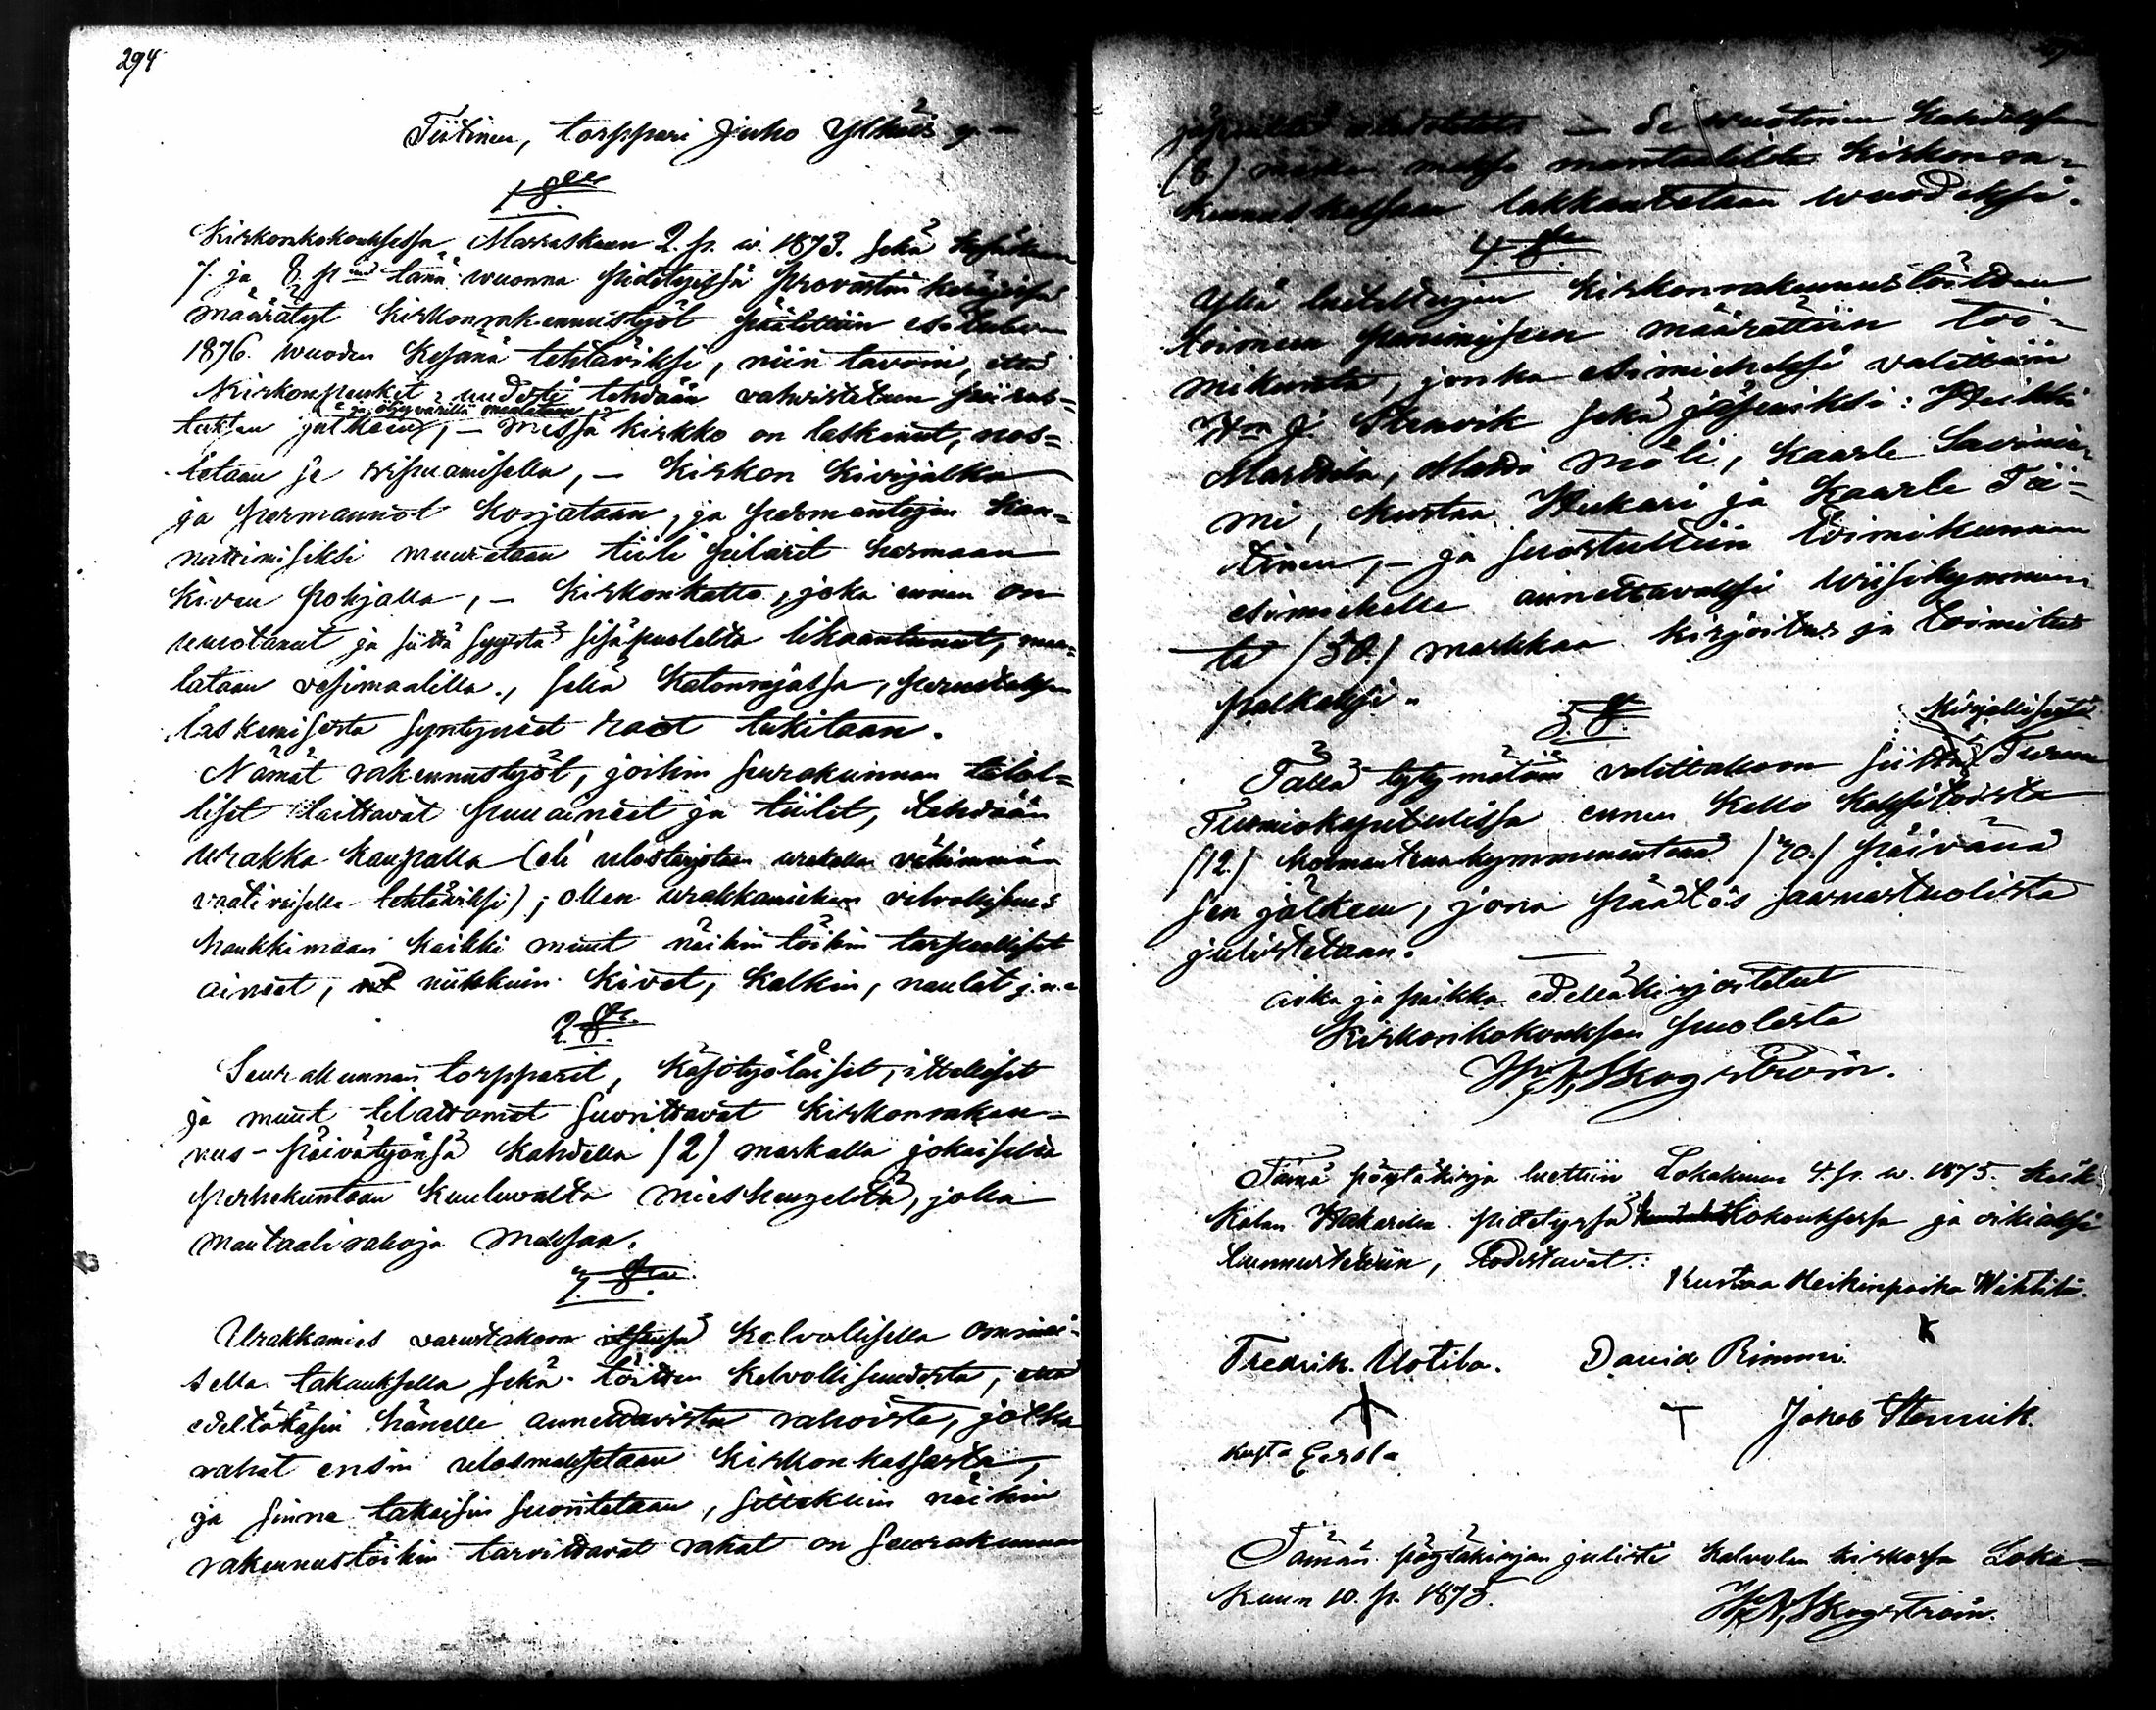 294
Tiitinen, torppari Juho Ylhäis y. —
1 §.
Kirkonkokouksessa Marraskuun 2. p. w. 1873. sekä Kesäkuun
7. ja 8. p nä tänä wuonna pidetyissä Provastin käräjissä
määrätyt Kirkonrakennustyöt päätettiin
1876. wuoden Kesänä tehtäviksi, niin tavoin, että
Kirkonpenkit uudesti tehdään vahvistetun piirus-
ja öljyvärillä maalataan
tuksen jälkeen, — missä kirkko on laskenut, nos-
tetaan se, — Kirkon Kivijalka
ja permannot Korjataan, ja permantojen Kan-
nattimiseksi muurataan tiili pilarit harmaan
Kiven pohjalla, — Kirkonkatto, joka ennen on
vuotanut ja siitä syystä sisäpuolelta likaantunut, maa-
lataan vesimaalilla, sekä Katonrajassa, perustuksen
laskemisesta syntyneet raot tukitaan.
Nämät rakennustyöt, joihin seurakunnan tilal-
liset laittavat puuaineet ja tiilit, tehdään
urakka kaupalla (eli ulostarjotaan urakalla vähimmän
vaativaiselle tehtäviksi); ollen urakkamiehen velvollisuus
hankkimaan kaikki muut näihin töihin tarpeelliset
aineet, niinkuin Kivet, Kalkin, naulat j. n. e.
2 §.
Seurakunnan torpparit, Käsityöläiset, itselliset
ja muut tilattomat suorittavat Kirkonraken-
nus-päivätyönsä Kahdella (2) markalla jokaiselta
perhekuntaan Kuuluvalta mieshengeltä, joka
mantaalirahoja maksaa.
3 §.
Urakkamies varustakoon itsensä Kelvollisella
sella takauksella sekä töitten Kelvollisuudesta, että
edeltäkäsin hänelle annettavista rahoista, jotka
rahat ensin ulosmaksetaan Kirkonkassasta,
ja sinne takaisin suoritetaan, sittekuin näihin
rakennustöihin tarvittavat rahat on seurakunnan
— Se wuotinen Kahdeksan
(8.) markan maksu mantaalilta Kirkonra-
kennuskassaan lakkautetaan wuodeksi.
4 §.
Yllä luetettujen Kirkonrakennustöitten
toimeen panemiseen määrättiin toi-
mikunta, jonka esimieheksi valittiin
Hra J. Stenvik sekä jäseniksi: Heikki
Marttila, Matti Möli, Kaarle Savinie-
mi, Kustaa Hukari ja Kaarle Tii-
tinen, — ja suostuttiin toimikunnan
esimiehelle annettavaksi Wiisikymmen-
tä (50.) markkaa kirjoitus ja toimitus
palkaksi.
5 §.
Tällä tytymätöin valittakoon siitä kirjallisesti Turun
Tuomiokapitulissa ennen Kello Kaksitoista
(12.) Kolmantenakymmenentenä (30.) päivänä
sen jälkeen, jona päätös saarnastuolista
julistetaan.
Aika ja paikka edelläkirjoitetut
Kirkonkokouksen puolesta
Hj. A. Skogström.
Tämä pöytäkirja luettiin Lokakuun 4. p. w. 1875.
pidetyssä Kokouksessa ja oikiaksi
tunnustettiin, todistavat:
Kustaa Heikinpoika Wähtilä.
Fredrik. Uotila.
David Rimmi.
Jakob Stenvik.
Kusta Eerola
Tämän pöytäkirjan julisti Kalvolan kirkossa Loka-
Kuun 10. p. 1875.
Hj. A. Skogström.